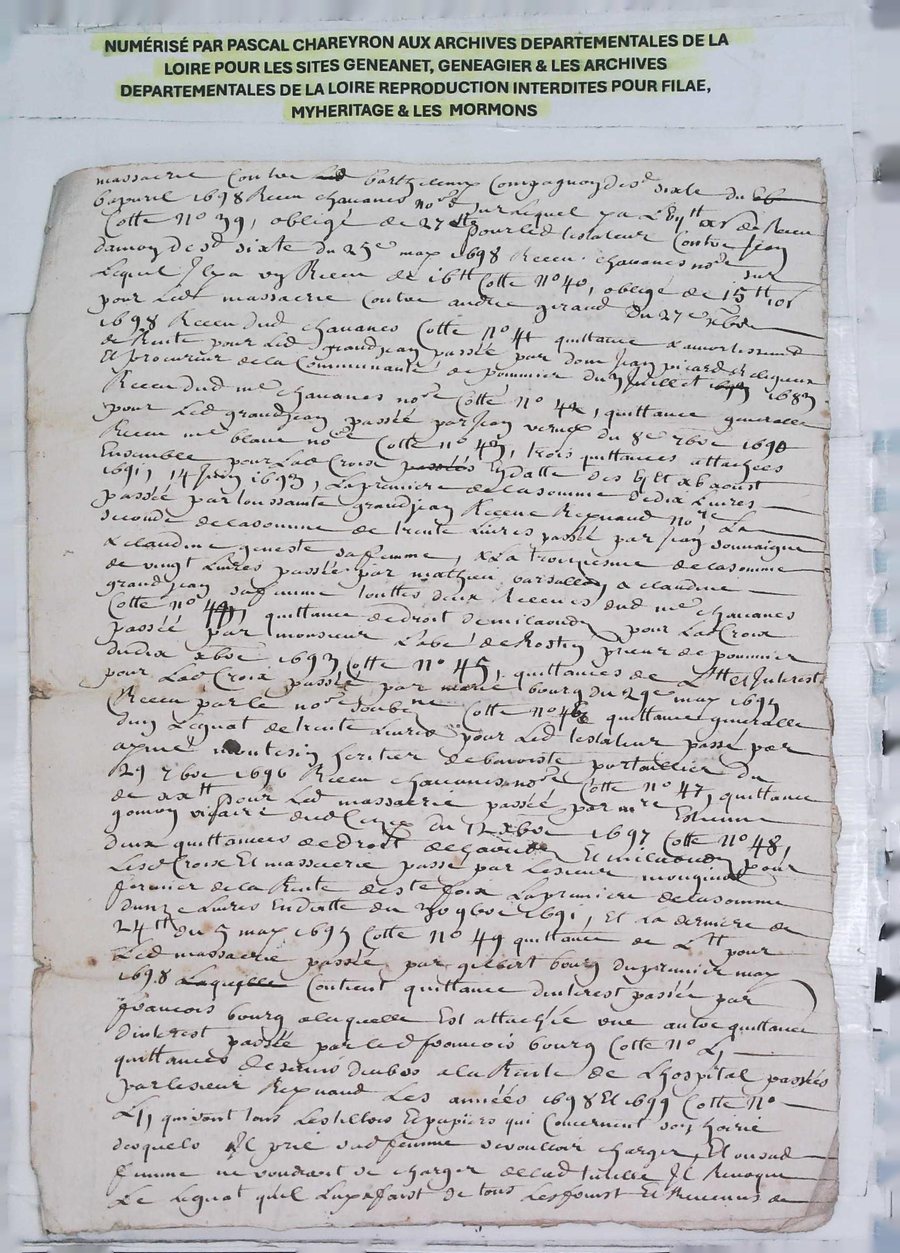 NUMÉRISÉ PAR PASCAL CHAREYRON AUX ARCHIVES DEPARTEMENTALES DE LA
LOIRE POUR LES SITES GENEANET, GENEAGIER & LES ARCHIVES
DEPARTEMENTALES DE LA LOIRE REPRODUCTION INTERDITES POUR FILAE,
MYHERITAGE & LES MORMONS
massacrie Contre barthelemy Compagnon de st sixte du
6 apvril 1698 Receu chauanes nore
Cotte No 39, obligé de 27 sur laquel y a de Receu
pour led testateur Contre Jean
damon de st sixte du 25e may 1698 Receu chauanes nore sur
Lequel Il y a un Receu de 16tt Cotte No 40, obligé de 15tt 10s
pour led massacrie Contre andre giraud du 27e
1698 Receu dud chauanes Cotte No 41 quittance damortissement
de Rente pour led grandjean passée par dom Jean picard Religieux
Et procureur de la Communauté de pommier du Juillet 1683
Receu dud me chauanes nore Cotte No 42, quittance generalle
pour led grandjean passée par Jean du 8e 7bre 1690
Receu me blanc nore Cotte No 43, trois quittances attachées
Ensemble pour Lad Croise En datte des aoust
1691, 14 Juin 1693, La premiere de la somme de dix Livres
passée par toussainte grandjean Receue Reynaud nore La
seconde de la somme de trente Livres passée par Jean
& claudine geneste sa femme, & La troizieme de la somme
de vingt Livres passée par mathieu & claudine
grandjean sa femme touttes deux Receues dud me chauanes
Cotte No 44, quittance de droit de milaoud pour Lad Croix
passée par monsieur L'abé de Rostin prieur de pommier
du dix xbre 1693 Cotte No 45, quittances de Ltt et Interest
pour Lad Croix passée par bourg du 29e may 1695
Receu par le nore Cotte No 46 quittance generalle
dun Legnat de trente Livres pour led testateur passé par
aymé montesin heritier de
29 7bre 1696 Receu chauanes nore Cotte No 47, quittance
de xxtt pour led massacrie passée par mre Estienne
vicaire dud Cezay du 12 xbre 1697 Cotte No 48,
deux quittances de droit de Et milaoud pour
Lesd Croise Et massacrie passé par Lesieur
fermier de la Rente de ste foix La premiere de la somme
dunze Livres En datte du 30 9bre 1691, Et La derniere de
24tt du 5 may 1695 Cotte No 49 quittance de Ltt pour
Led massacrie passée par gilbert bourg du premier may
1698 Laquelle Contient quittance dinterest passée par
françois bourg a laquelle Est attachée une autre quittance
dinterest passée par led françois bourg Cotte No L,
quittances de a la Rente de Lhospital passées
par lesieur Reynaud Les années 1698 Et 1699 Cotte No
L1, qui sont tous Les tiltres Et papiers qui Concernent son hoirie
desquels Il prie sad femme de vouloir charger, Et ou sad
femme ne voudroit se charger de lad tutelle Il Revoque
Le Legnat quil Luy a faict de tous Les fruist Et Revenus de